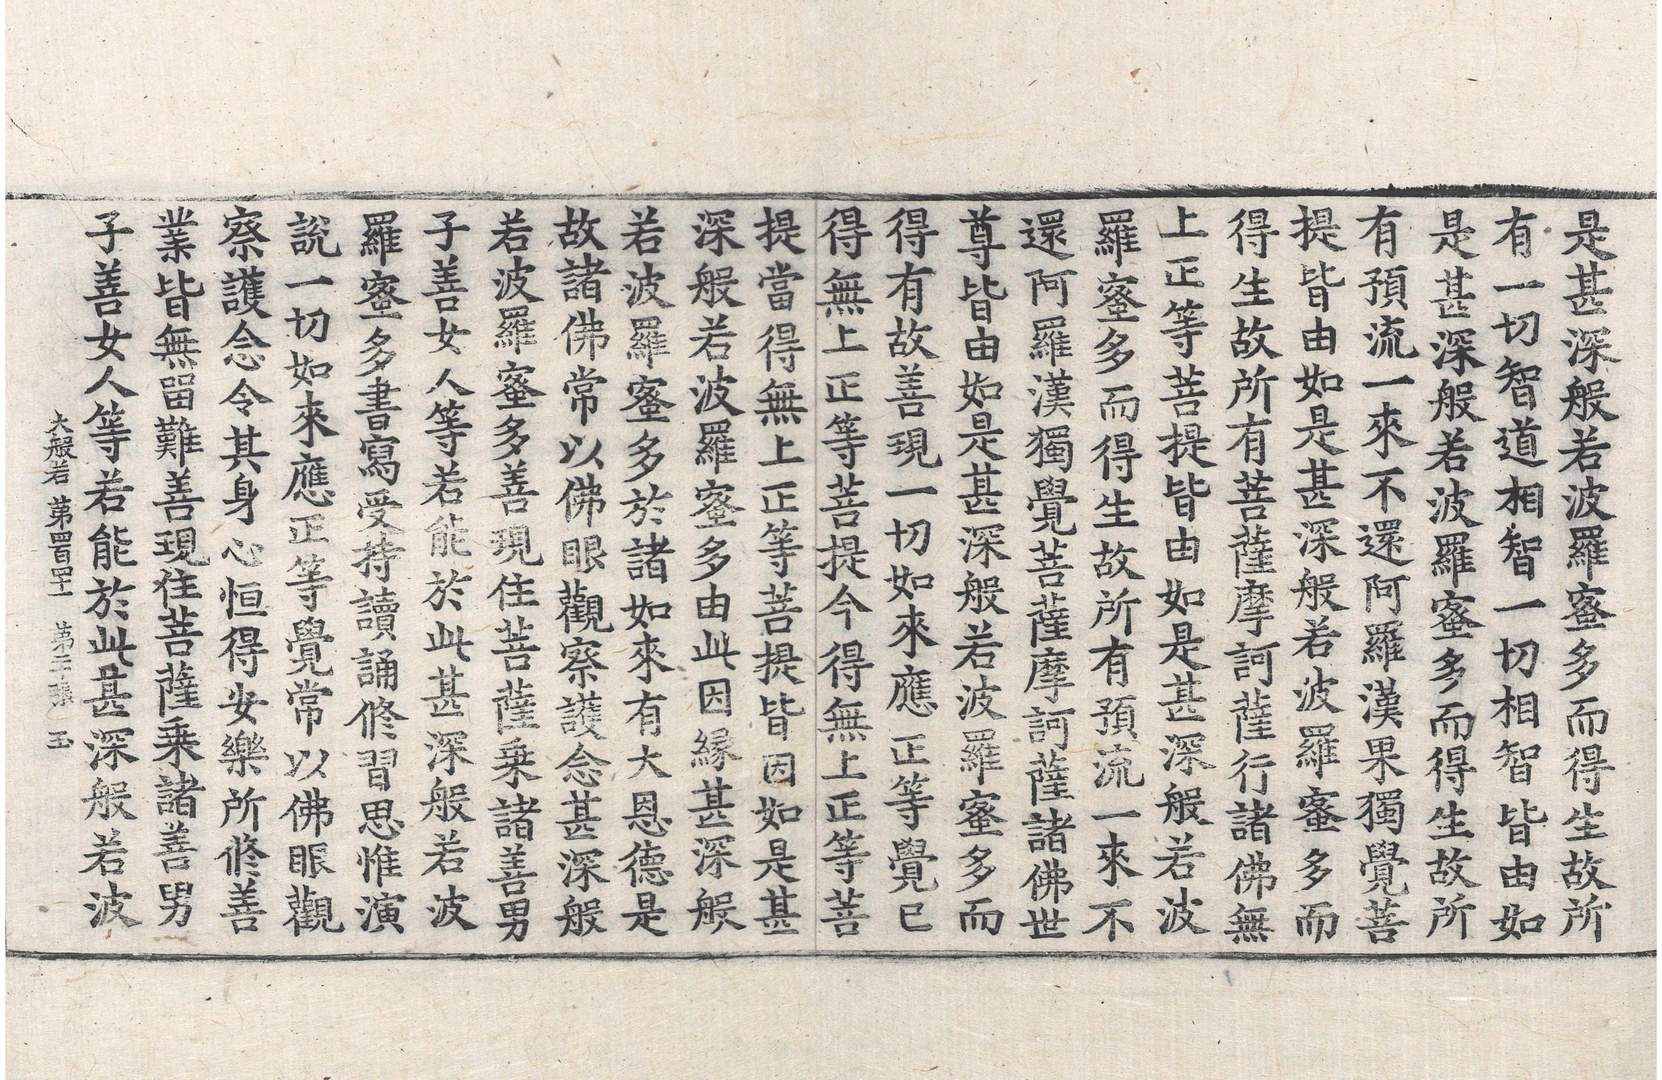 是甚深般若波羅蜜多而得生故所
有一切智道相智一切相智皆由如
是甚深般若波羅蜜多而得生故所
有預流一來不還阿羅漢果獨覺菩
提皆由如是甚深般若波羅蜜多而
得生故所有菩薩摩訶薩行諸佛無
上正等菩提皆由如是甚深般若波
羅蜜多而得生故所有預流一來不
還阿羅漢獨覺菩薩摩訶薩諸佛世
尊皆由如是甚深般若波羅蜜多而
得有故善現一切如來應正等覺已
得無上正等菩提今得無上正等菩
提當得無上正等菩提皆因如是甚
深般若波羅蜜多由此因緣甚深般
若波羅蜜多於諸如來有大恩德是
故諸佛常以佛眼觀察護念甚深般
若波羅蜜多善現住菩薩乘諸善男
子善女人等若能於此甚深般若波
羅蜜多書寫受持讀誦修習思惟演
說一切如來應正等覺常以佛眼觀
察護念令其身心恒得安樂所修善
業皆無留難善現住菩薩乘諸善男
子善女人等若能於此甚深般若波
大般若 第四百四十一 張 玉